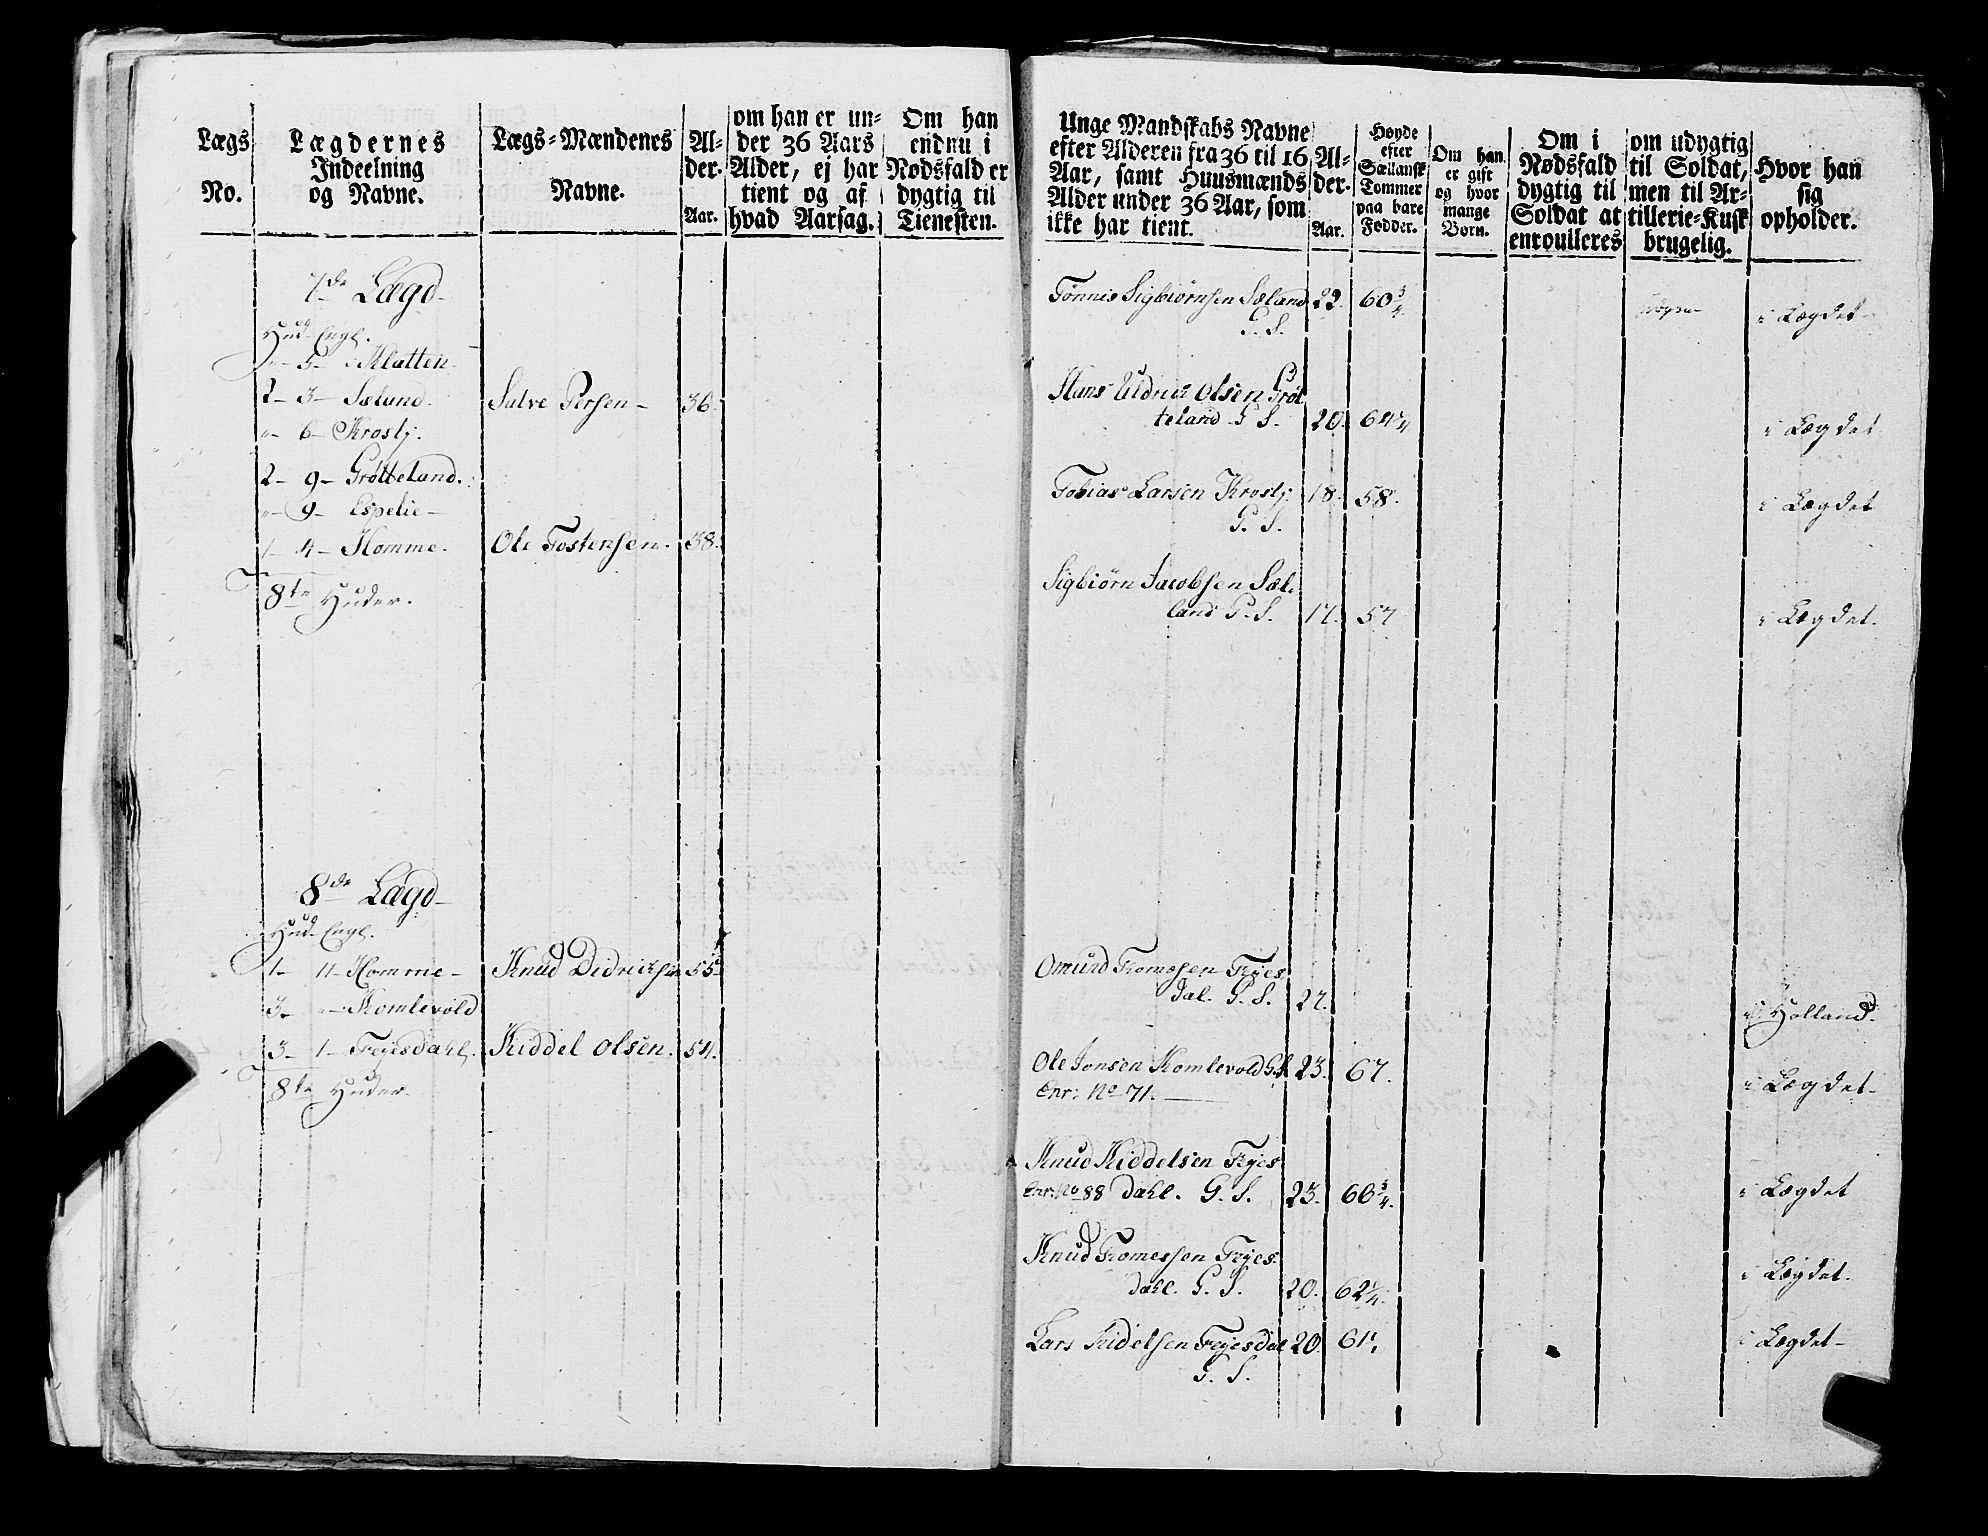 Lægs
No.
Lægdernes
Indeelning
og Navne.
Lægs-Mændenes
Navne.
Al-
der.
Aar.
om han er un-
der 36 Aars
Alder, ej har
tient og af
hvad Aarsag.
Om han
endnu i
Nødsfald er
dygtig til
Tienesten.
7de Lægd
Hud. Engl.
"- 5- Klatten
2- 3- Sæland. Salve Persen- 36.
"- 6- Krosbj.
2- 9- Grøtteland.
"- 9- Espelie-
1- 4- Homme. Ole Tostensen. 38.
8te Huder.
8de Lægd
Hud. Engl.
1- 11- Homme- Knud Didrichsen 55
3- "- Komlevold
3- 1- Feyesdahl. Kiddel Olsen. 54.
8te Huder.
Unge Mandskabs Navne
efter Alderen fra 36 til 16
Aar, samt Huusmænds
Alder under 36 Aar, som
ikke har tient.
Al-
der.
Aar.
Høyde
efter
Sællansk
Tommer
paa bare
Fødder.
Om han
er gift
og hvor
mange
Børn.
Om i
Nødsfald
dygtig til
Soldat at
enroulleres
om udygtig
til Soldat,
men til Ar-
tillerie-Kusk
brugelig.
Hvor han
sig
opholder.
Tønnis Sigbiørnsen Sæland 22. 60 3/4 i Lægdet-
G. S.
Hans Uldrich Olsen Grøt
teland G S. 20. 64 3/4 i Lægdet
Tobias Larsen Krosbj. 18. 58. i Lægdet
G. S.
Sigbiørn Jacobsen Sæl.
land G. S. 17. 57 i Lægdet.
Omund Tomesen Feyes
dal. G. S. 27. i Holland.
Ole Jonsen Komlevold G.S 23. 67. i Lægdet-
Enr: No 71.
Knud Kiddelsen Feyes
Enr: No 88 dahl. G. S. 23. 66 3/4. i Lægdet
Knud Tomessen Feyes
dahl. G. S. 20. 62 1/4. i Lægdet.
Lars Kidelsen Feyesdal 20. 61 i Lægdet-
G. S.